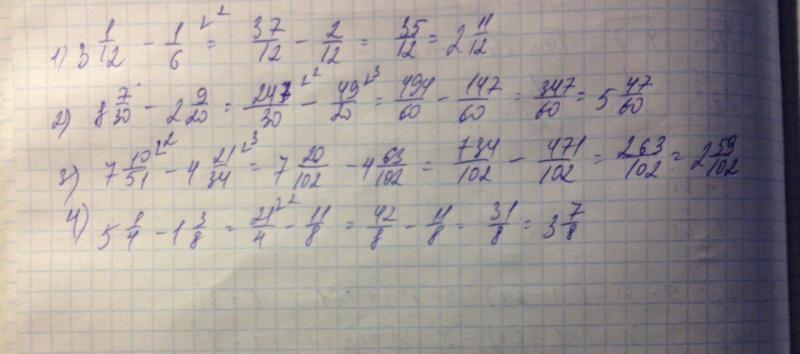 1) 3 1/12 - 1/6 ²= 37/12 - 2/12 = 35/12 = 2 11/12
2) 8 7/30 - 2 9/20 = 247/30 ² - 49/20 ³ = 494/60 - 147/60 = 347/60 = 5 47/60
3) 7 10/51 ² - 4 21/34 ³ = 7 20/102 - 4 63/102 = 734/102 - 471/102 = 263/102 = 2 59/102
4) 5 1/4 - 1 3/8 = 21/4 ² - 11/8 = 42/8 - 11/8 = 31/8 = 3 7/8